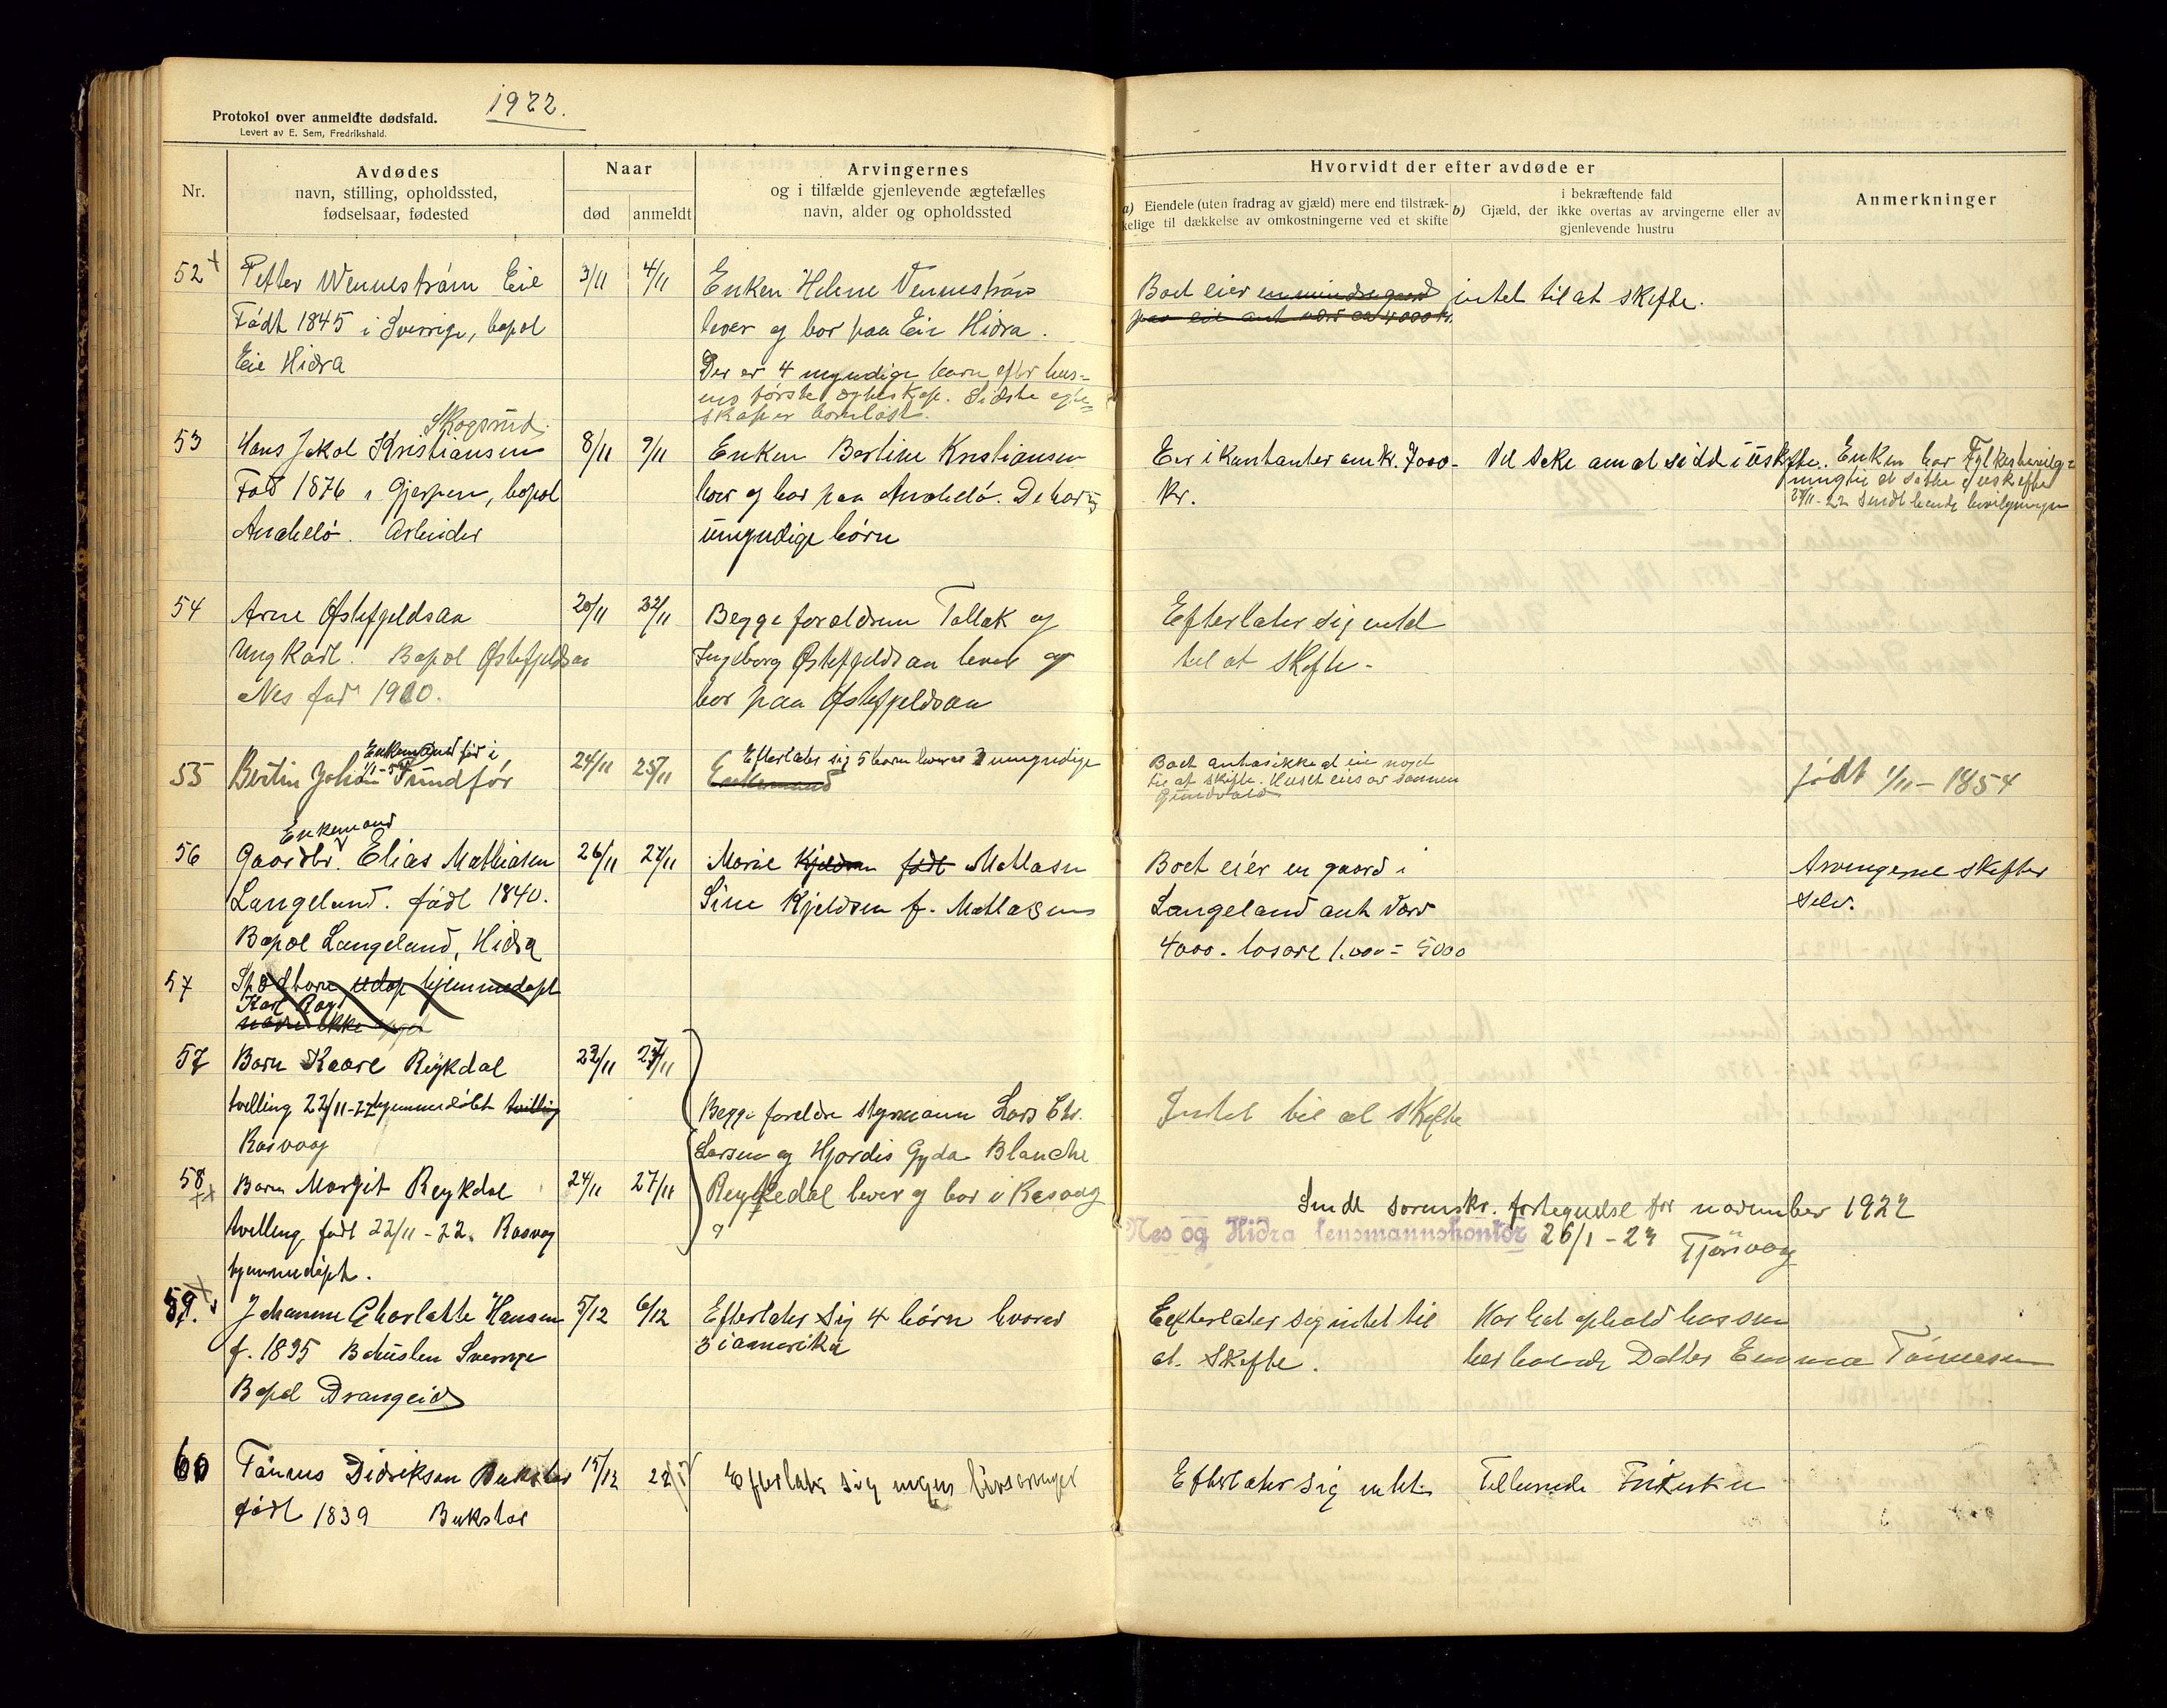 1922.
Protokol over anmeldte dødsfald.
Levert av E. Sem, Fredrikshald.
Nr.
Avdødes
navn, stilling, opholdssted,
fødselsaar, fødested
Naar
død
anmeldt
Arvingernes
og i tilfælde gjenlevende ægtefælles
navn, alder og opholdssted
Hvorvidt der efter avdøde er
a) Eiendele (uten fradrag av gjæld) mere end tilstræk-
kelige til dækkelse av omkostningerne ved et skifte
b) Gjæld, der
i bekræftende fald
ikke overtas av arvingerne eller av
gjenlevende hustru
Anmerkninger
52
Petter Wennestrøm Eie
Født 1845 i Sverige, bopæl
Eie Hidra
3/11
4/11
Enken Helene Vennestrøm
lever og bor paa Eie Hidra.
Der er 4 myndige barn efter hus-
ens første egteskap. Sidste egte-
skap er barnløst.
Boet eier en mindre gaard intet til at skifte.
paa Eie ant verd ca 4000 kr.
53
Skogsrud
Hans Jakob Kristiansen
Født 1876 i Gjerpen, bopæl
Anabeló. Arbeider
8/11
9/11
Enken Bertine Kristiansen
lever og bor paa Anabeló. De har 5
umyndige børn
Eier i kontanter omkr. 7000-
kr.
Vil søke om at sidde i uskifte.
Enken har Fylkesbevilg-
ning til at sitte i uskifte
27/11-22 Sendt hende bevilgningen
54
Arne Østefjeldsaa
Ungkarl. Bopæl Østefjeldsaa
Nes fød 1900.
20/11
22/11
Begge forældrene Tallak og
Ingeborg Østefjeldsaa lever og
bor paa Østefjeldsaa
Efterlater sig intet
til at skifte-
55
Enkemand fød i
1/1-54
Bertin Johan Sundfør
24/11
25/11
Efterlater sig 5 barn hvorav 2 umyndige
Enkemand
Boet antas ikke at eie noget
til at skifte. Huset eies av sønnen
Gundvald
født 1/11-1854
56
Enkemand
Gaardbr. Elias Mathiasen
Langeland. født 1840.
Bopæl Langeland, Hidra
26/11
27/11
Marie Kjeldsen født Matiasen
Sine Kjeldsen f. Matiasen
Boet eier en gaard i
Langeland ant verd
4000. løsøre 1.000 = 5000
Arvingerne skifter
selv.
57
Spædbarn udøp hjemmedøpt
Karl Aag
navn ikke
57
Barn Kaare Reykdal
tvilling 22/11-22 hjemmedøbt tvilling
Rasvaag
23/11
27/11
Begge forældre styrmann Lars Chr.
Larsen og Hjørdis Gyda Blanche
Reykdal lever og bor i Rasvaag
Intet til at skifte
58
Barn Margit Reykdal
tvilling født 22/11-22. Rasvag
hjemmedøpt.
24/11
27/11
Sendt sorenskr. fortegnelse for november 1922
Nes og Hidra lensmannskontor 26/1-23
Tjørsvaag
59.
Johanne Charlotte Hansen
f. 1835 Bohuslen Sverrige
Bopæl Drangeid
5/12
6/12
Efterlater sig 4 børn hvorav
3 i amerika
Efterlater sig intet til
at skifte.
Har hat ophold hos sin
her boende Datter Emma Tønnesen
60
Tønnes Didriksen Bukstøl
født 1839 Bukstøl
15/12
22/12
Efterlater sig ingen livsarvinger
Efterlater sig intet.
Tilhørende